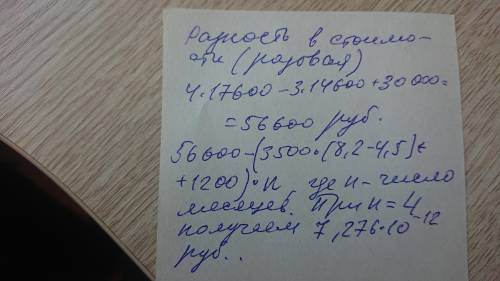 Разность в стоимо-
сти (разовая)
4·17600-3·14600+30000=
=56600 руб.
56600-(3500·(8,2-4,5)+
+1200)·n, где n-число
месяцев. При n=4
получаем 7,276·10⁻¹²
руб..